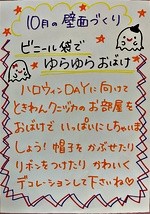 10月の壁面づくり
ビニール袋で
ゆらゆらおばけ
ハロウィンDAYに向けて
ときわんクニヅカのお部屋を
おばけでいっぱいにしちゃいま
しょう！帽子をかぶせたり
リボンをつけたりかわいく
デコレーションして下さいね♡